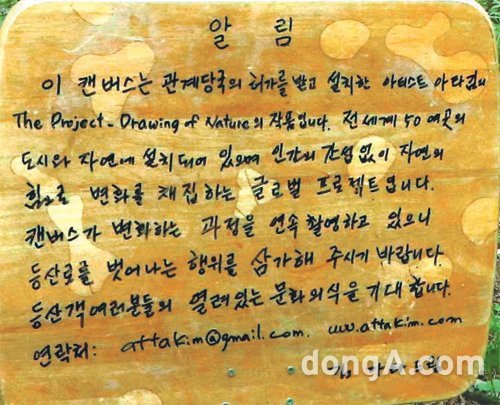 알 림
이 캔버스는 관계당국의 허가를 받고 설치한 아티스트 아타김의
The Project - Drawing of Nature의 작품입니다. 전세계 50여곳의
도시와 자연에 설치되어 있으며 인간의 간섭없이 자연의
힘으로 변화를 채집하는 글로벌 프로젝트입니다.
캔버스가 변화하는 과정을 연속 촬영하고 있으니
등산로를 벗어나는 행위를 삼가해 주시기 바랍니다.
등산객여러분들의 열려있는 문화의식을 기대합니다.
연락처: attakim@gmail.com. www.attakim.com
dongA.com